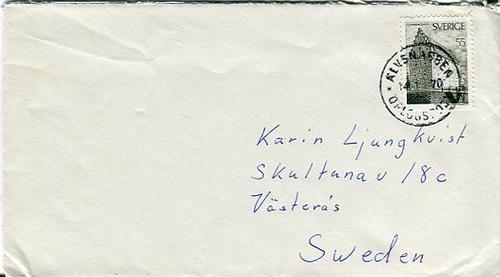 SVERIGE
55
ÄLVSNABBEN
14 70
Karin Ljungkvist
Skultunav 18c
Västerås
Sweden